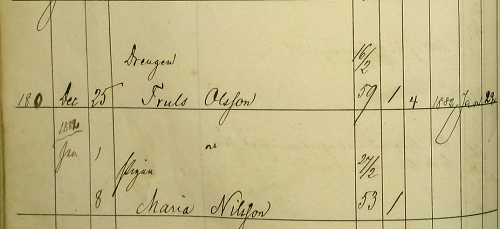 Drengen 16/2
180 Dec 25 Truls Olsson 59 1 4 1880 Jan 23
Jan 1
Pigan 27/2
8 Maria Nilsson 53 1